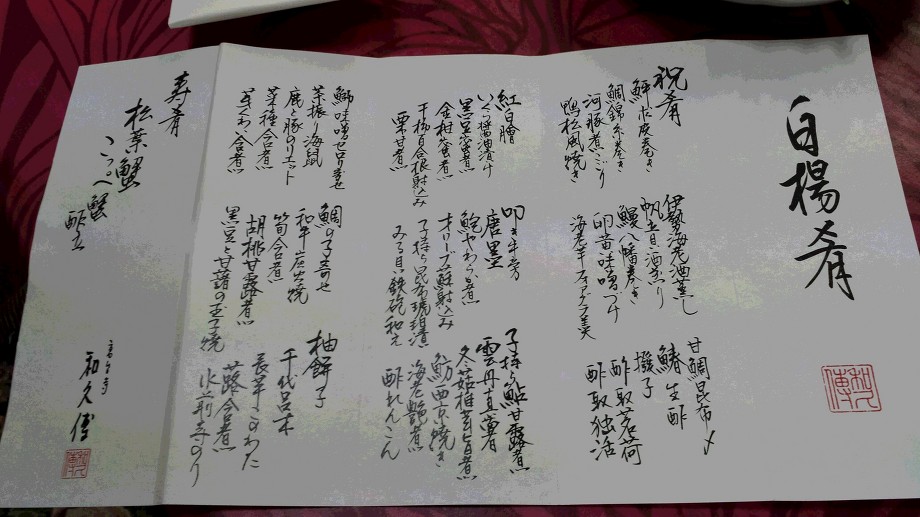 白楊肴
祝肴
鮃求皮巻き
鯛錦糸巻き
河豚煮こごり
鴨松風焼き
伊勢海老酒蒸し
帆立貝酒煎り
鰻八幡巻き
卵黄味噌づけ
海老芋フォアグラ美
甘鯛昆布〆
鰆生酢
撥子
酢取茗荷
酢取独活
紅白膾
いくら醤油漬け
黒豆蜜煮
金柑蜜煮
干柿百合根射込み
栗甘煮
叩き牛蒡
唐墨
鮑やわらか煮
オリーブ蘇射込み
子持ち昆布琥珀漬
みる貝鉄砲和え
子持ち鮎甘露煮
雲丹真薯
冬菇椎茸旨煮
魴西京焼き
海老艶煮
酢れんこん
鰤味噌セロリ寄せ
茶振り海鼠
鹿と豚のリエット
菜種含煮
くわい含煮
鯛の子寄せ
和牛山葵焼
筍含煮
胡桃甘露煮
黒豆と甘藷の玉子焼
柚餅子
千代呂木
長芋このわた
蕗含煮
水前寺のり
寿肴
松葉蟹
こっぺ蟹
酢立
高台寺
和久傳
和久傳